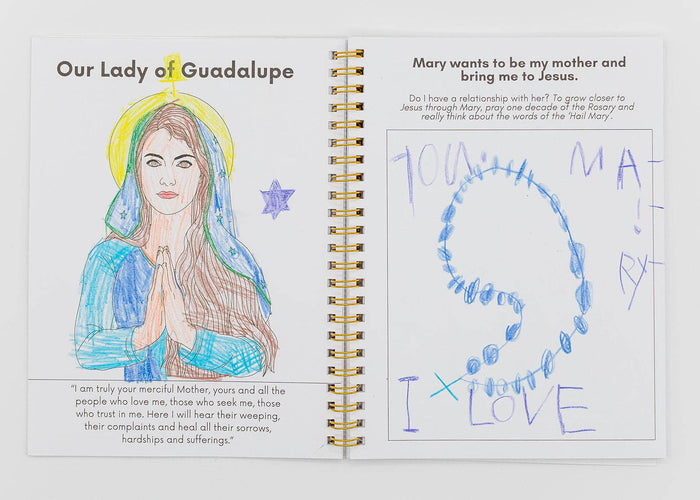 Our Lady of Guadalupe
"I am truly your merciful Mother, yours and all the
people who love me, those who seek me, those
who trust in me. Here I will hear their weeping,
their complaints and heal all their sorrows,
hardships and sufferings."
Mary wants to be my mother and
bring me to Jesus.
Do I have a relationship with her? To grow closer to
Jesus through Mary, pray one decade of the Rosary and
really think about the words of the 'Hail Mary'.
YOU.
MA-
!-
RY-
I LOVE